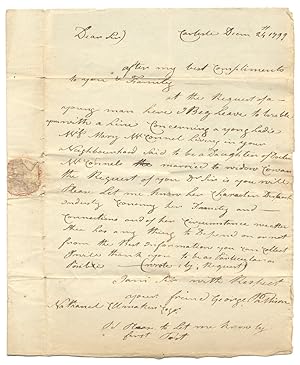 Dear Sir Carlisle Decm 24th 1799
after my best Compliments
to you & Family
at the Request of a
young man here I Beg leave to troble
you with a line Concerning a yong Lady
Mary McConnel Living in your
Neighbourhood Said to be a Daughter of
McConnels married to widow Cowan
the Request of you Dr Sir is you will
Please Let me know her Character
her Family and
Connections and of her Circumstance
She has any thing to Depend on or not
from the Best Information you can Collect
I would thank you to be as Particular as
Posible (wrote by Request)
I am Sir with Respect
your friend George Pattison
Nathaniel Esqr
PS Please to Let me know by
first Post